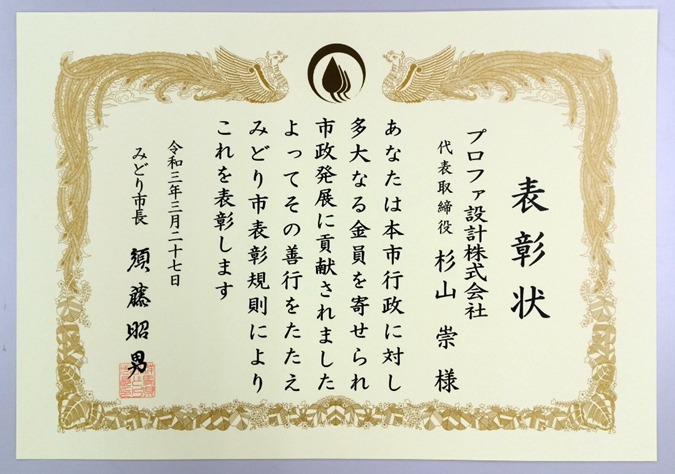 表彰状
プロファ設計株式会社
代表取締役 杉山 崇 様
あなたは本市行政に対し
多大なる金員を寄せられ
市政発展に貢献されました
よってその善行をたたえ
みどり市表彰規則により
これを表彰します
令和三年三月二十七日
みどり市長 須藤昭男